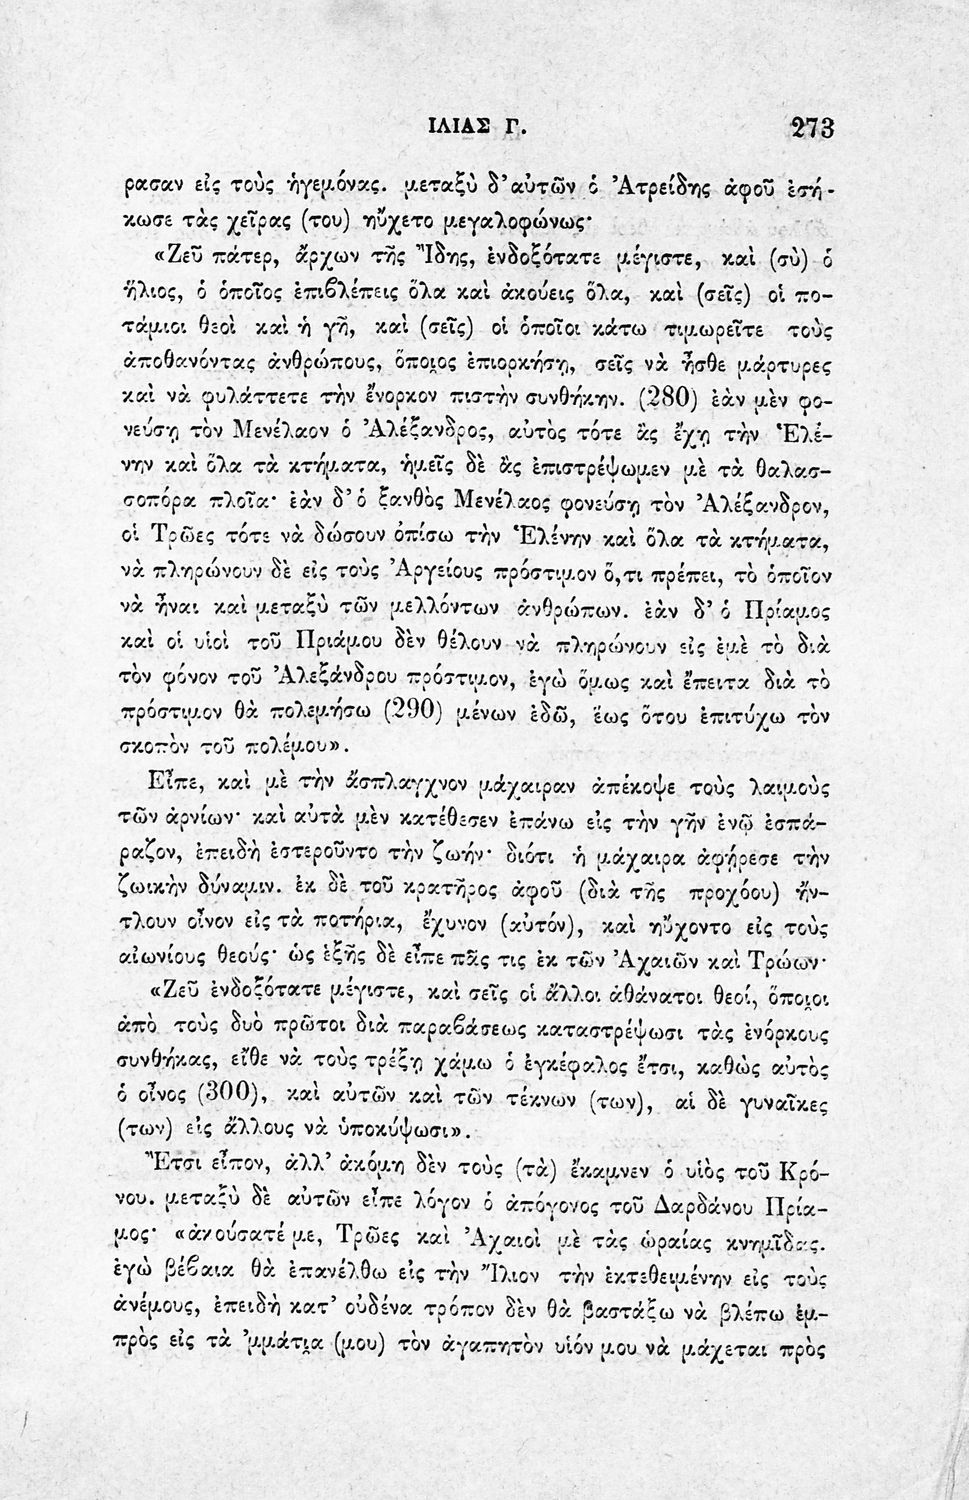 ΙΛΙΑΣ Γ. 273
ρασαν εἰς τοὺς ἡγεμόνας. μεταξὺ δ’αὐτῶν ὁ Ἀτρείδης ἀφοῦ ἐσή-
κωσε τὰς χεῖρας (του) ηὔχετο μεγαλοφώνως·
«Ζεῦ πάτερ, ἄρχων τῆς Ἴδης, ἐνδοξότατε μέγιστε, καὶ (σὺ) ὁ
ἥλιος, ὁ ὁποῖος ἐπιβλέπεις ὅλα καὶ ἀκούεις ὅλα, καὶ (σεῖς) οἱ πο-
τάμιοι θεοὶ καὶ ἡ γῆ, καὶ (σεῖς) οἱ ὁποῖοι κάτω τιμωρεῖτε τοὺς
ἀποθανόντας ἀνθρώπους, ὅποιος ἐπιορκήσῃ, σεῖς νὰ ἦσθε μάρτυρες
καὶ νὰ φυλάττετε τὴν ἔνορκον πιστὴν συνθήκην. (280) ἐὰν μὲν φο-
νεύσῃ τὸν Μενέλαον ὁ Ἀλέξανδρος, αὐτὸς τότε ἂς ἔχῃ τὴν Ἑλέ-
νην καὶ ὅλα τὰ κτήματα, ἡμεῖς δὲ ἂς ἐπιστρέψωμεν μὲ τὰ θαλασ-
σοπόρα πλοῖα· ἐὰν δ’ὁ ξανθὸς Μενέλαος φονεύσῃ τὸν Ἀλέξανδρον,
οἱ Τρῶες τότε νὰ δώσουν ὀπίσω τὴν Ἑλένην καὶ ὅλα τὰ κτήματα,
νὰ πληρώνουν δὲ εἰς τοὺς Ἀργείους πρόστιμον ὅ,τι πρέπει, τὸ ὁποῖον
νὰ ἦναι καὶ μεταξὺ τῶν μελλόντων ἀνθρώπων. ἐὰν δ’ ὁ Πρίαμος
καὶ οἱ υἱοὶ τοῦ Πριάμου δὲν θέλουν νὰ πληρώνουν εἰς ἐμὲ τὸ διὰ
τὸν φόνον τοῦ Ἀλεξάνδρου πρόστιμον, ἐγὼ ὅμως καὶ ἔπειτα διὰ τὸ
πρόστιμον θὰ πολεμήσω (290) μένων ἐδῶ, ἕως ὅτου ἐπιτύχω τὸν
σκοπὸν τοῦ πολέμου».
Εἶπε, καὶ μὲ τὴν ἄσπλαγχνον μάχαιραν ἀπέκοψε τοὺς λαιμοὺς
τῶν ἀρνίων· καὶ αὐτὰ μὲν κατέθεσεν ἐπάνω εἰς τὴν γῆν ἐνῷ ἐσπά-
ραζον, ἐπειδὴ ἐστεροῦντο τὴν ζωήν· διότι ἡ μάχαιρα ἀφῄρεσε τὴν
ζωικὴν δύναμιν. ἐκ δὲ τοῦ κρατῆρος ἀφοῦ (διὰ τῆς προχόου) ἤν-
τλουν οἶνον εἰς τὰ ποτήρια, ἔχυνον (αὐτόν), καὶ ηὔχοντο εἰς τοὺς
αἰωνίους θεούς· ὡς ἑξῆς δὲ εἶπε πᾶς τις ἐκ τῶν Ἀχαιῶν καὶ Τρώων·
«Ζεῦ ἐνδοξότατε μέγιστε, καὶ σεῖς οἱ ἄλλοι ἀθάνατοι θεοί, ὅποιοι
ἀπὸ τοὺς δυὸ πρῶτοι διὰ παραβάσεως καταστρέψωσι τὰς ἐνόρκους
συνθήκας, εἴθε νὰ τοὺς τρέξῃ χάμω ὁ ἐγκέφαλος ἔτσι, καθὼς αὐτὸς
ὁ οἶνος (300), καὶ αὐτῶν καὶ τῶν τέκνων (των), αἱ δὲ γυναῖκες
(των) εἰς ἄλλους νὰ ὑποκύψωσι».
Ἔτσι εἶπον, ἀλλ’ ἀκόμη δὲν τοὺς (τὰ) ἔκαμνεν ὁ υἱὸς τοῦ Κρό-
νου. μεταξὺ δὲ αὐτῶν εἶπε λόγον ὁ ἀπόγονος τοῦ Δαρδάνου Πρία-
μος· «ἀκούσατέ με, Τρῶες καὶ Ἀχαιοὶ μὲ τὰς ὡραίας κνημῖδας.
ἐγὼ βέβαια θὰ ἐπανέλθω εἰς τὴν Ἴλιον τὴν ἐκτεθειμένην εἰς τοὺς
ἀνέμους, ἐπειδὴ κατ’ οὐδένα τρόπον δὲν θὰ βαστάξω νὰ βλέπω ἐμ-
πρὸς εἰς τὰ ’μμάτια (μου) τὸν ἀγαπητὸν υἱόν μου νὰ μάχεται πρὸς